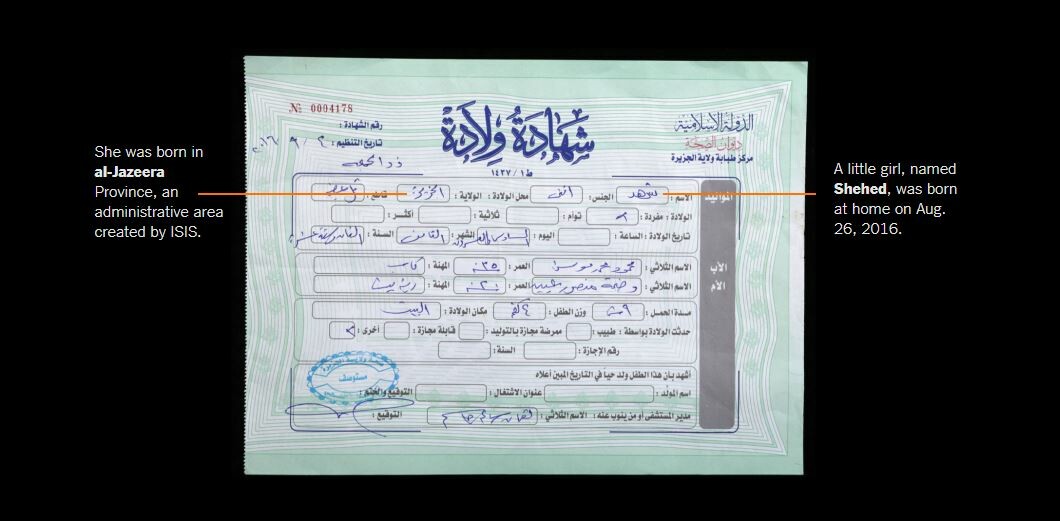 She was born in
al-Jazeera
Province, an
administrative area
created by ISIS.
A little girl, named
Shehed, was born
at home on Aug.
26, 2016.
№ 0004178
رقم الشهادة :
تاريخ التنظيم : ٢ / ٩ / ٢٠١٦
شهادة ولادة
ط١ / ١٤٣٧
الدولة الإسلامية
ديوان الصحة
مركز طبابة ولاية الجزيرة
المواليد
الاسم : شهد الجنس : انثى محل الولادة : الولاية : الجزيرة قاطع :
الولادة : مفردة : توأم : ثلاثية : أكثر :
تاريخ الولادة : الساعة : اليوم : السادس والعشرون الشهر : الثامن السنة :
الأب
الاسم الثلاثي : العمر : ٣٥ المهنة : كاسب
الأم
الاسم الثلاثي : وضحة منصور العمر : المهنة : ربة بيت
مدة الحمل : وزن الطفل : ٤ كغم مكان الولادة : البيت
حدثت الولادة بواسطة : طبيب : ممرضة مجازة بالتوليد : قابلة مجازة : أخرى :
رقم الإجازة : السنة :
أشهد بأن هذا الطفل ولد حياً في التاريخ المبين أعلاه
اسم المولد : عنوان الاشتغال : التوقيع والختم :
مدير المستشفى أو من ينوب عنه : الاسم الثلاثي : التوقيع :
مستوصف